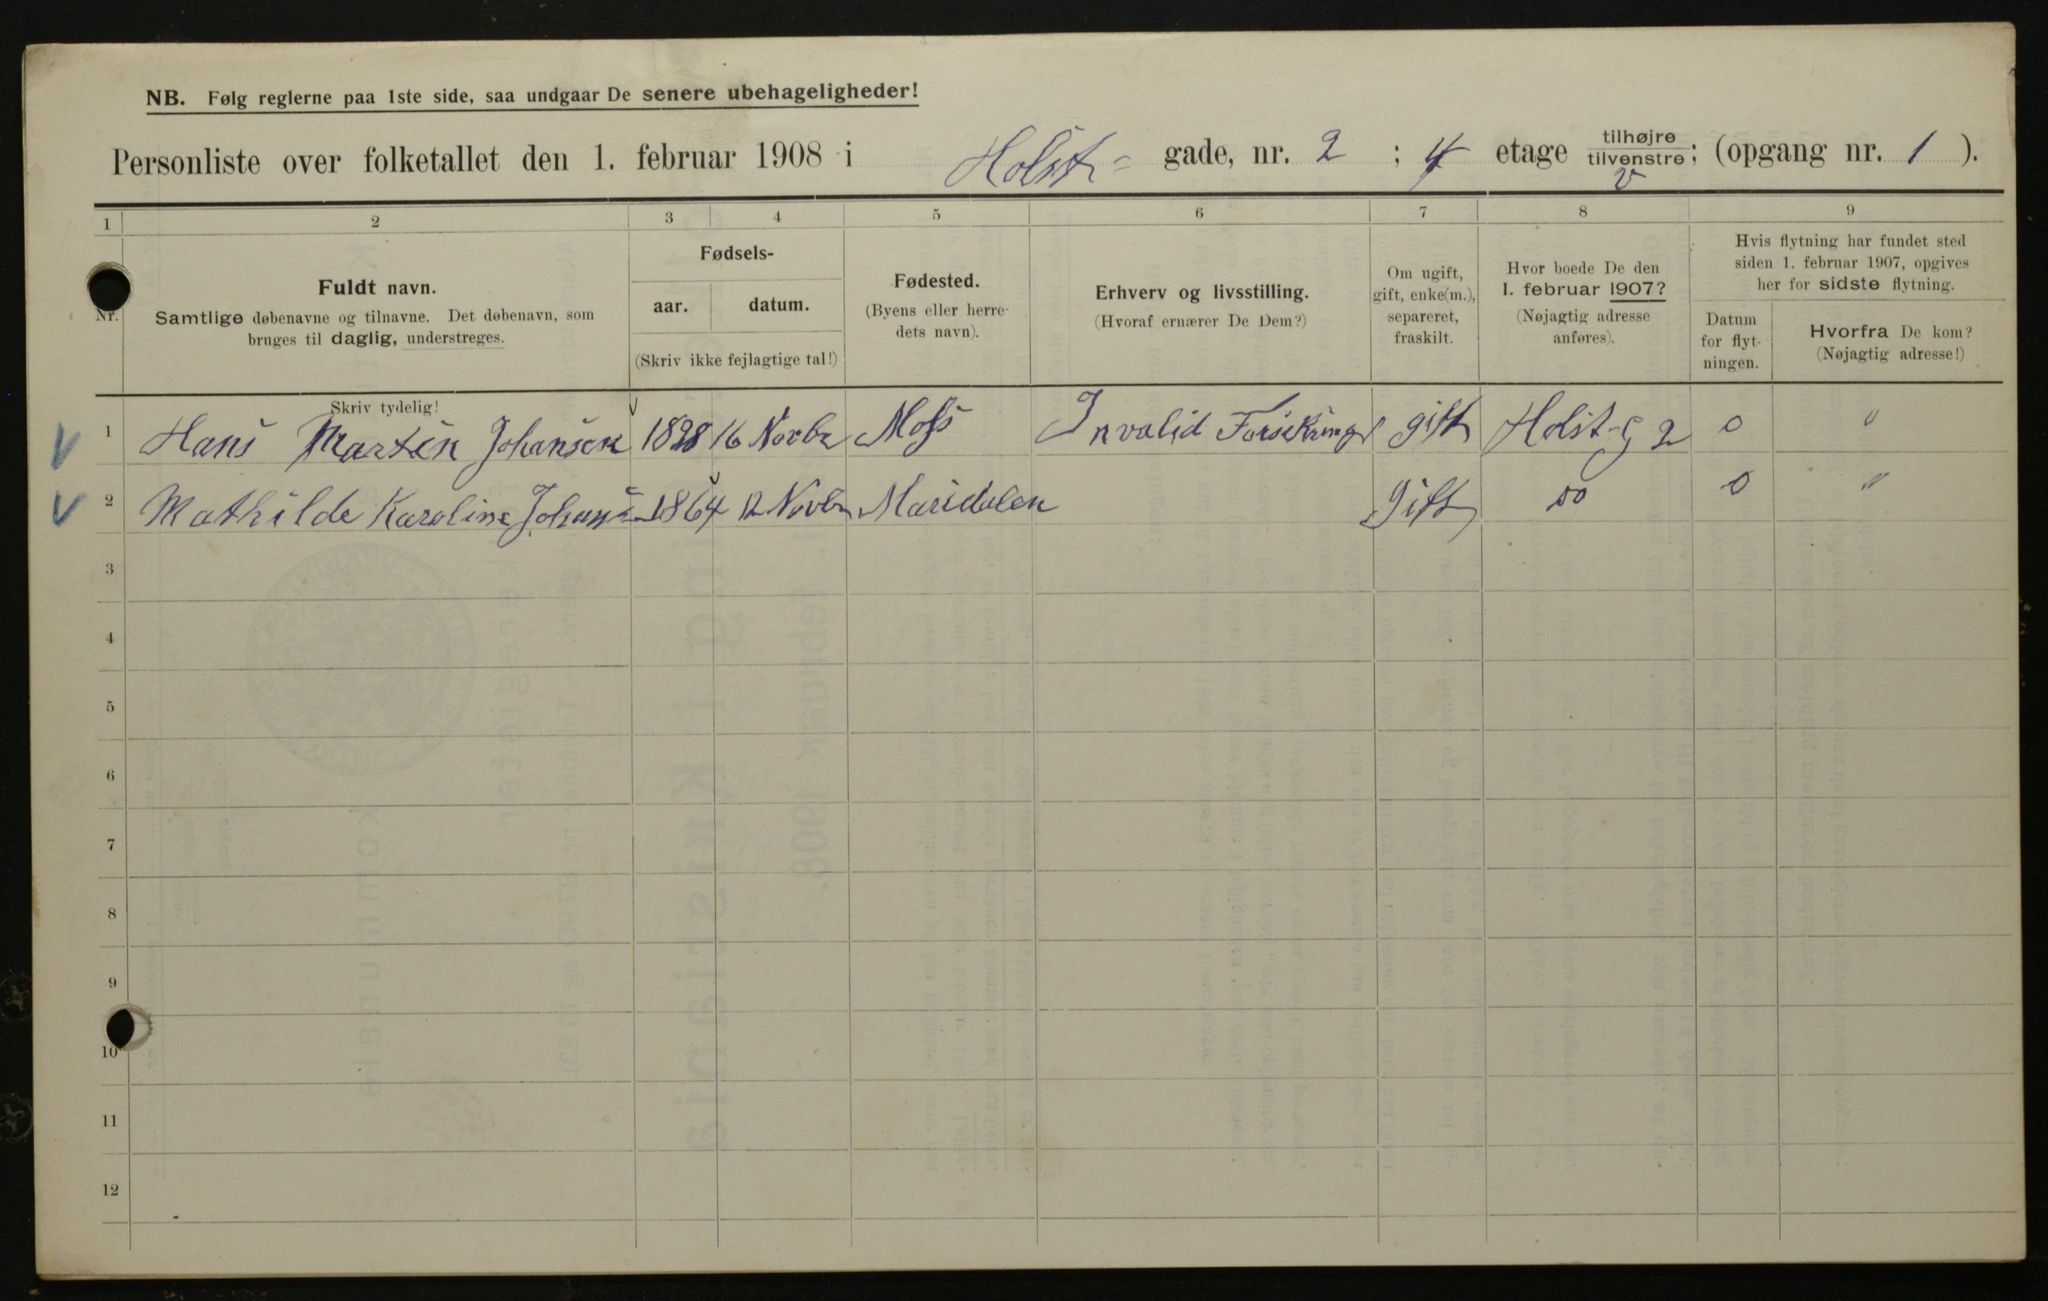 NB. Følg reglerne paa 1ste side, saa undgaar De senere ubehageligheder!
Personliste over folketallet den 1. februar 1908 i Holst- gade, nr. 2 ; 4 etage tilhøjre / tilvenstre v ; (opgang nr. 1 ).
1 2 3 4 5 6 7 8 9
Nr.
Fuldt navn.
Samtlige døbenavne og tilnavne. Det døbenavn, som
bruges til daglig, understreges.
Skriv tydelig!
Fødsels-
aar. datum.
(Skriv ikke fejlagtige tal!)
Fødested.
(Byens eller herre-
dets navn).
Erhverv og livsstilling.
(Hvoraf ernærer De Dem?)
Om ugift,
gift, enke(m.),
separeret,
fraskilt.
Hvor boede De den
1. februar 1907?
(Nøjagtig adresse
anføres).
Hvis flytning har fundet sted
siden 1. februar 1907, opgives
her for sidste flytning.
Datum
for flyt-
ningen.
Hvorfra De kom?
(Nøjagtig adresse!)
1 Hans Martin Johansen 1828 16 Novbr Moss Invalid Forsikring gift Holst-g 2 0 "
2 Mathilde Karoline Johans 1864 12 Novbr Maridalen Gift do 0 "
3
4
5
6
7
8
9
10
11
12